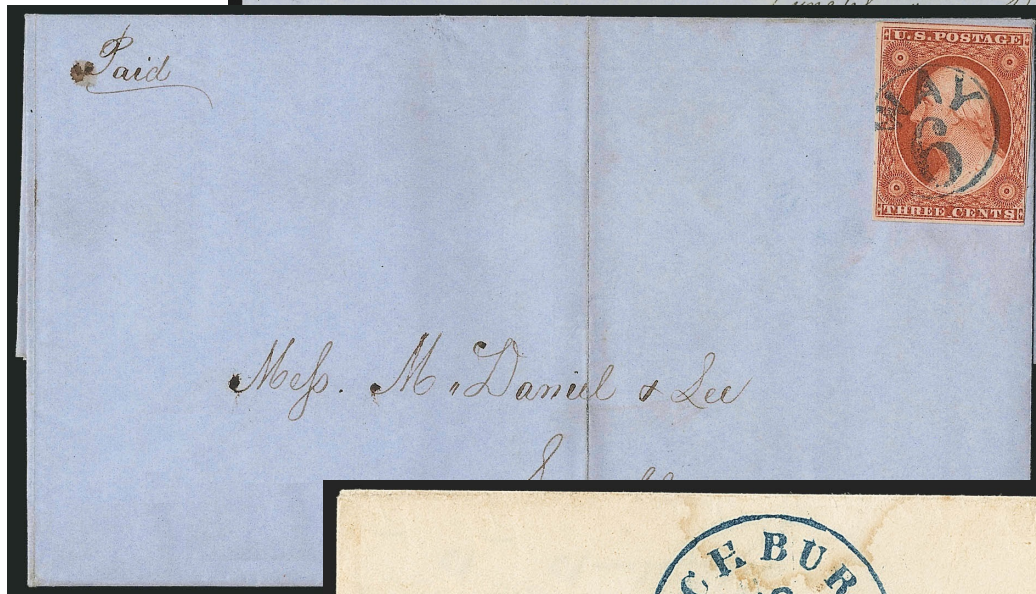 Paid
U.S. POSTAGE
MAY
6
THREE CENTS
Mess. M "Daniel & Lee
CH BUR